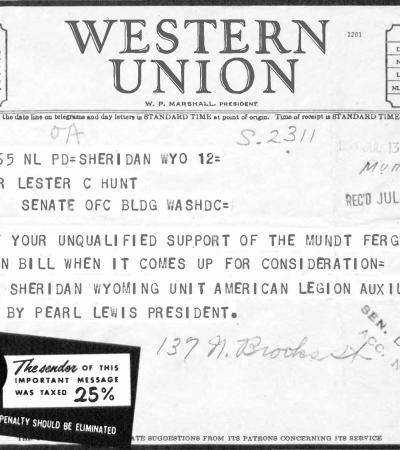 WESTERN
UNION
1201
W. P. MARSHALL, PRESIDENT
the date line on telegrams and day letters is STANDARD TIME at point of origin. Time of receipt is STANDARD TIME
OA
S-2311
55 NL PD=SHERIDAN WYO 12=
R LESTER C HUNT
SENATE OFC BLDG WASHDC=
REC'D JUL
YOUR UNQUALIFIED SUPPORT OF THE MUNDT FERG
N BILL WHEN IT COMES UP FOR CONSIDERATION=
SHERIDAN WYOMING UNIT AMERICAN LEGION AUXIL
BY PEARL LEWIS PRESIDENT.
SEN. L
ACC.
137 N. Brooks St
The sender OF THIS
IMPORTANT MESSAGE
WAS TAXED 25%
PENALTY SHOULD BE ELIMINATED
ATE SUGGESTIONS FROM ITS PATRONS CONCERNING ITS SERVICE